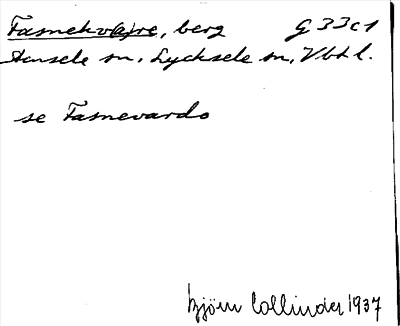 Tasmekv(a)re, berg G 33c1
Åsele sn, Lycksele sn, Vbtl.
se Tasmevardo
Björn Collinder 1937